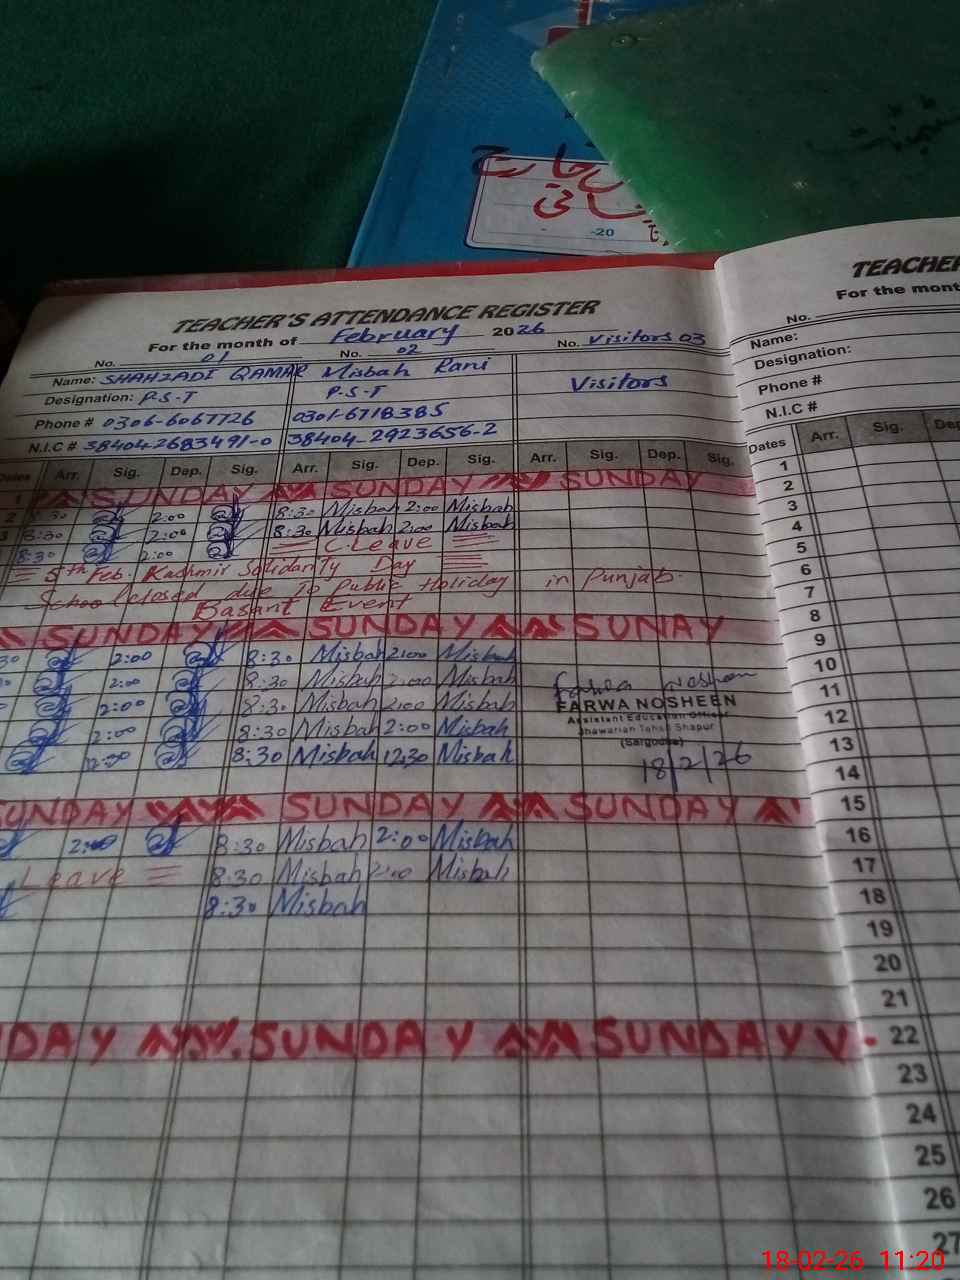 خارج
-20
TEACHER'S ATTENDANCE REGISTER
For the month of February 2026
No. 01 No. 02 No. Visitors 03
Name: SHAHZADI QAMAR Misbah Rani Visitors
Designation: P.S.T P.S.T
Phone # 0306-6067726 0301-6718385
N.I.C # 38404-2683491-0 38404-2923656-2
Dates Arr. Sig. Dep. Sig. Arr. Sig. Dep. Sig. Arr. Sig. Dep. Sig.
1 SUNDAY SUNDAY SUNDAY
2 8:30 2:00 8:30 Misbah 2:00 Misbah
3 8:30 2:00 8:30 Misbah 2:00 Misbah
8:30 2:00 C.Leave
5th Feb. Kashmir Solidarity Day
School closed due To Public Holiday in Punjab.
Basant Event
SUNDAY SUNDAY SUNAY
30 2:00 8:30 Misbah 2:00 Misbah
2:00 8:30 Misbah 2:00 Misbah
2:00 8:30 Misbah 2:00 Misbah
2:00 8:30 Misbah 2:00 Misbah
12:30 8:30 Misbah 12:30 Misbah
FARWA NOSHEEN
Assistant Education Officer
Jhawarian Tehsil Shapur
(Sargodha)
18/2/26
SUNDAY SUNDAY SUNDAY
2:00 8:30 Misbah 2:00 Misbah
Leave 8:30 Misbah 2:00 Misbah
8:30 Misbah
NDAY SUNDAY SUNDAY
TEACHER
For the mont
No.
Name:
Designation:
Phone #
N.I.C #
Dates Arr. Sig. Dep
1
2
3
4
5
6
7
8
9
10
11
12
13
14
15
16
17
18
19
20
21
22
23
24
25
26
27
18-02-26 11:20